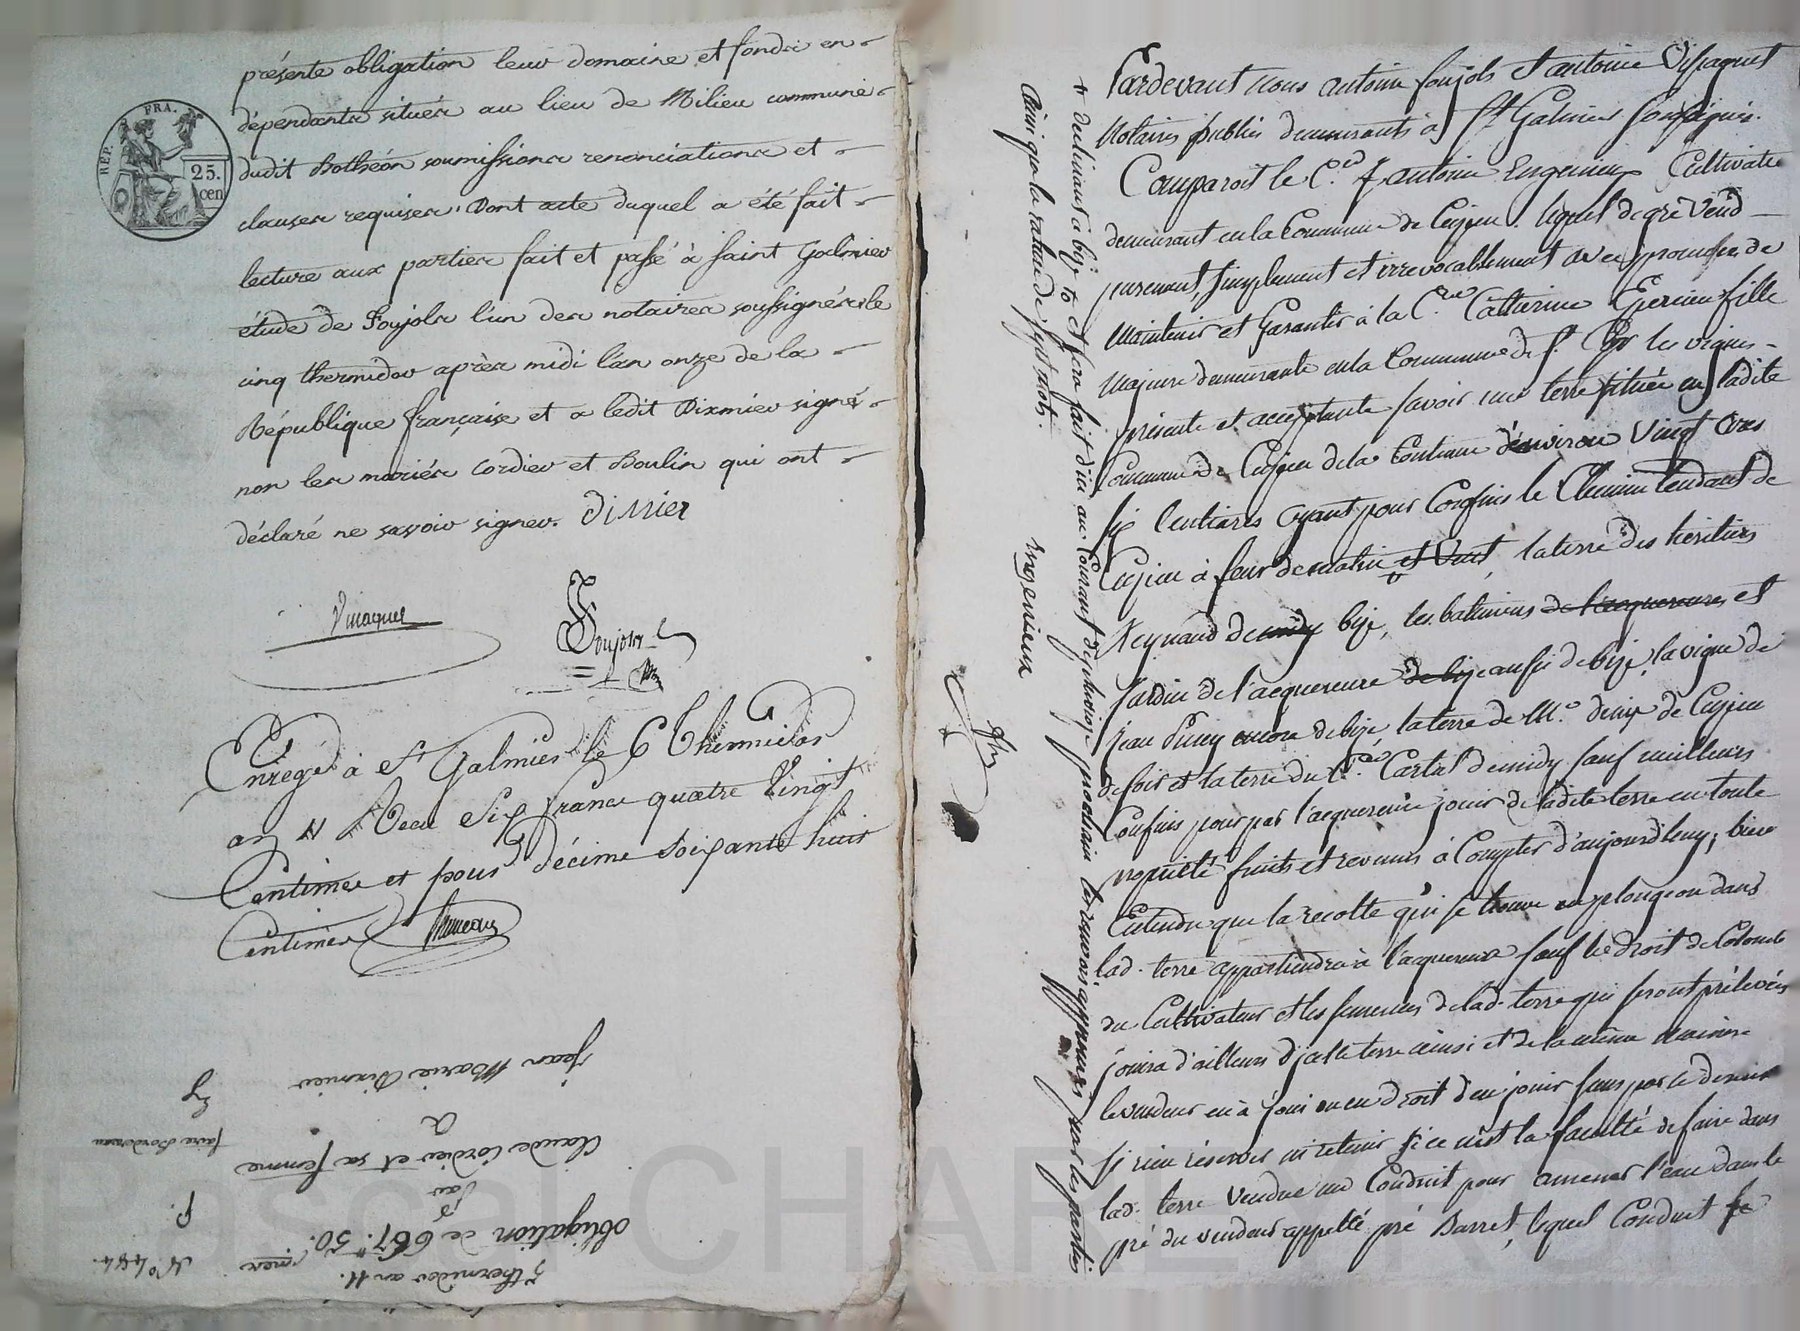 présente obligation leur domaine et fonds en
dépendants situés au lieu de Milieu commune
dudit Bothéon soumissions renonciations et
clauses requises. Dont acte duquel a été fait
lecture aux parties fait et passé à saint Galmier
étude de Foujols l'un des notaires soussignés le
cinq thermidor après midi l'an onze de la
République française et a ledit Dixmier signé
non les mariés Cordier et Boulin qui ont
déclaré ne savoir signer. Dimier
REP. FRA.
25.
cen
Vinaquet
Foujols
Enregé à St Galmier le 6 Thermidor
an 11 Reçu Six francs quatre Vingt
Centimes et pour Décime Soixante huit
Centimes
Jean Marie Dixmier
à
Claude Cordier et sa femme
par
obligation de 667. 50.
5 thermidor an 11.
faire Bordereau
N° 484.
+ declinant à bize, et sera fait d'ici au courant de prochain les renvois approuvés par les parties
Ainsi que la rature de sept mots.
Engenieux
Pardevant nous antoine foujols et antoine
Notaires publics demeurants à St Galmier soussignés.
Comparoit le C.en antoine Engenieux Cultivateur
demeurant en la Commune de Cuzieu. lequel de gré vend
purement, simplement et irrevocablement avec promesse de
Maintenir et Garantir à la C.enne Catherine fille
Majeure demeurante en la Commune de St Cyr les vignes
présente et acceptante savoir une terre située en ladite
Commune de Cuzieu de la Contenue d'environ Vingt ares
six Centiares ayant pour Confins le Chemin tendant de
Cuzieu à feurs de matin et vent, la terre des heritiers
Reynaud de midy bize, les batiments de l'acquereure et
Jardin de l'acquereure de bize aussi de bize, la vigne de
jean encore de bize la terre de M.e denix de Cuzieu
de soir et la terre du C.en Cartal de midy sauf meilleurs
Confins pour par l'acquereure jouir de ladite terre en toute
propriété fruits et revenus à Compter d'aujourdhuy; bien
Entendu que la recolte qui se trouve en plongeon dans
lad. terre appartiendra à l'acquereure sauf le droit de Colonat
du Cultivateur et les semences de lad. terre qui seront prélevés
jouira d'ailleurs d'icelle terre ainsi et de la même maniere
le vendeur en a joui ou eu droit d'en jouir sans par ce dernier
y rien réserver ni retenir si ce n'est la faculté de faire dans
lad. terre vendue un Conduit pour amener l'eau dans le
pré du vendeur appellé pré Barret, lequel Conduit se
Pascal CHARLYRON